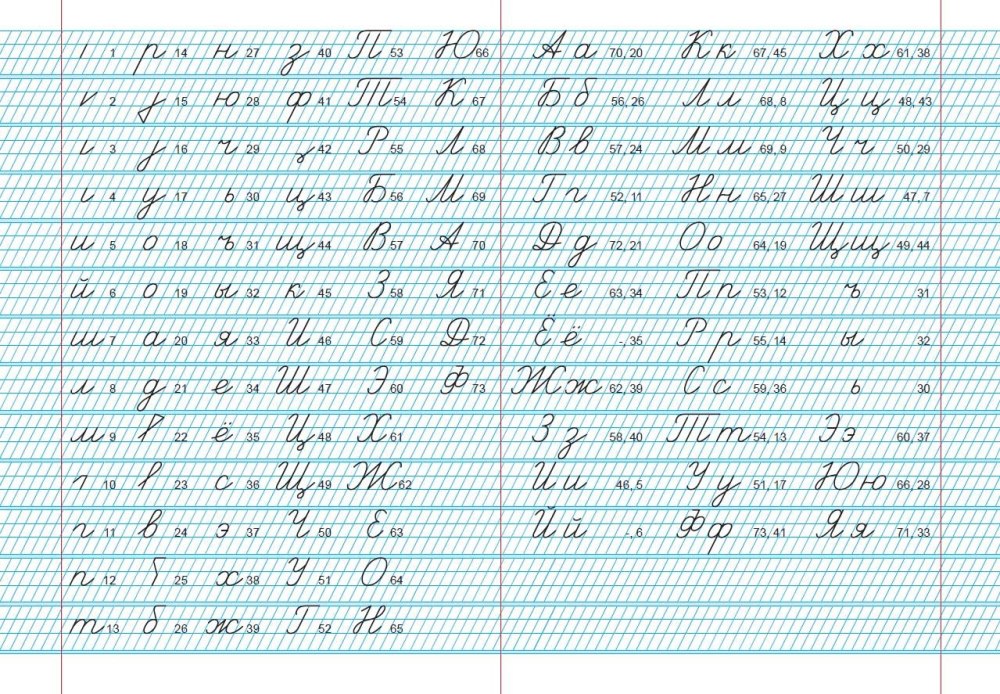 1 р 14 н 27 з 40 П 53 Ю 66 А а 70, 20 К к 67, 45 Х х 61, 38
2 15 ю 28 ф 41 Т 54 К 67 Б б 56, 26 Л л 68, 8 Ц ц 48, 43
3 16 ч 29 42 Р 55 Л 68 В в 57, 24 М м 69, 9 Ч ч 50, 29
4 у 17 ь 30 ц 43 Б 56 М 69 Г г 52, 11 Н н 65, 27 Ш ш 47, 7
и 5 о 18 ъ 31 щ 44 В 57 А 70 Д д 72, 21 О о 64, 19 Щ щ 49, 44
й 6 о 19 ы 32 к 45 З 58 Я 71 Е е 63, 34 П п 53, 12 ъ 31
ш 7 а 20 я 33 И 46 С 59 Д 72 Ё ё -, 35 Р р 55, 14 ы 32
л 8 д 21 е 34 Ш 47 Э 60 Ф 73 Ж ж 62, 39 С с 59, 36 ь 30
м 9 22 ё 35 Ц 48 Х 61 З з 58, 40 Т т 54, 13 Э э 60, 37
10 23 с 36 Щ 49 Ж 62 И и 46, 5 У у 51, 17 Ю ю 66, 28
г 11 в 24 э 37 Ч 50 Е 63 Й й -, 6 Ф ф 73, 41 Я я 71, 33
п 12 25 х 38 У 51 О 64
т 13 б 26 ж 39 Г 52 Н 65